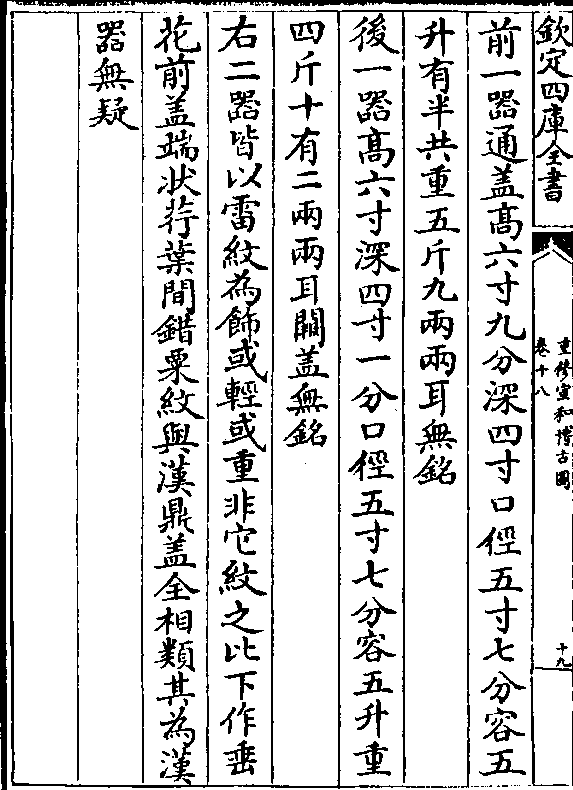 欽定四庫全書
重修宣和博古圖
卷十八
十九
前一器通盖髙六寸九分深四寸口徑五寸七分容五
升有半共重五斤九兩兩耳無銘
後一器髙六寸深四寸一分口徑五寸七分容五升重
四斤十有二兩兩耳闕盖無銘
右二器皆以雷紋為飾或輕或重非它紋之比下作垂
花前盖端狀荇葉間錯粟紋與漢鼎盖全相類其為漢
器無疑